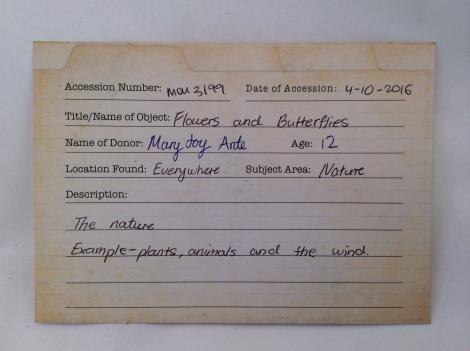 Accession Number: MOU 3,199 Date of Accession: 4-10-2016
Title/Name of Object: Flowers and Butterflies
Name of Donor: Mary Joy Ante Age: 12
Location Found: Everywhere Subject Area: Nature
Description:
The nature
Example-plants, animals and the wind.